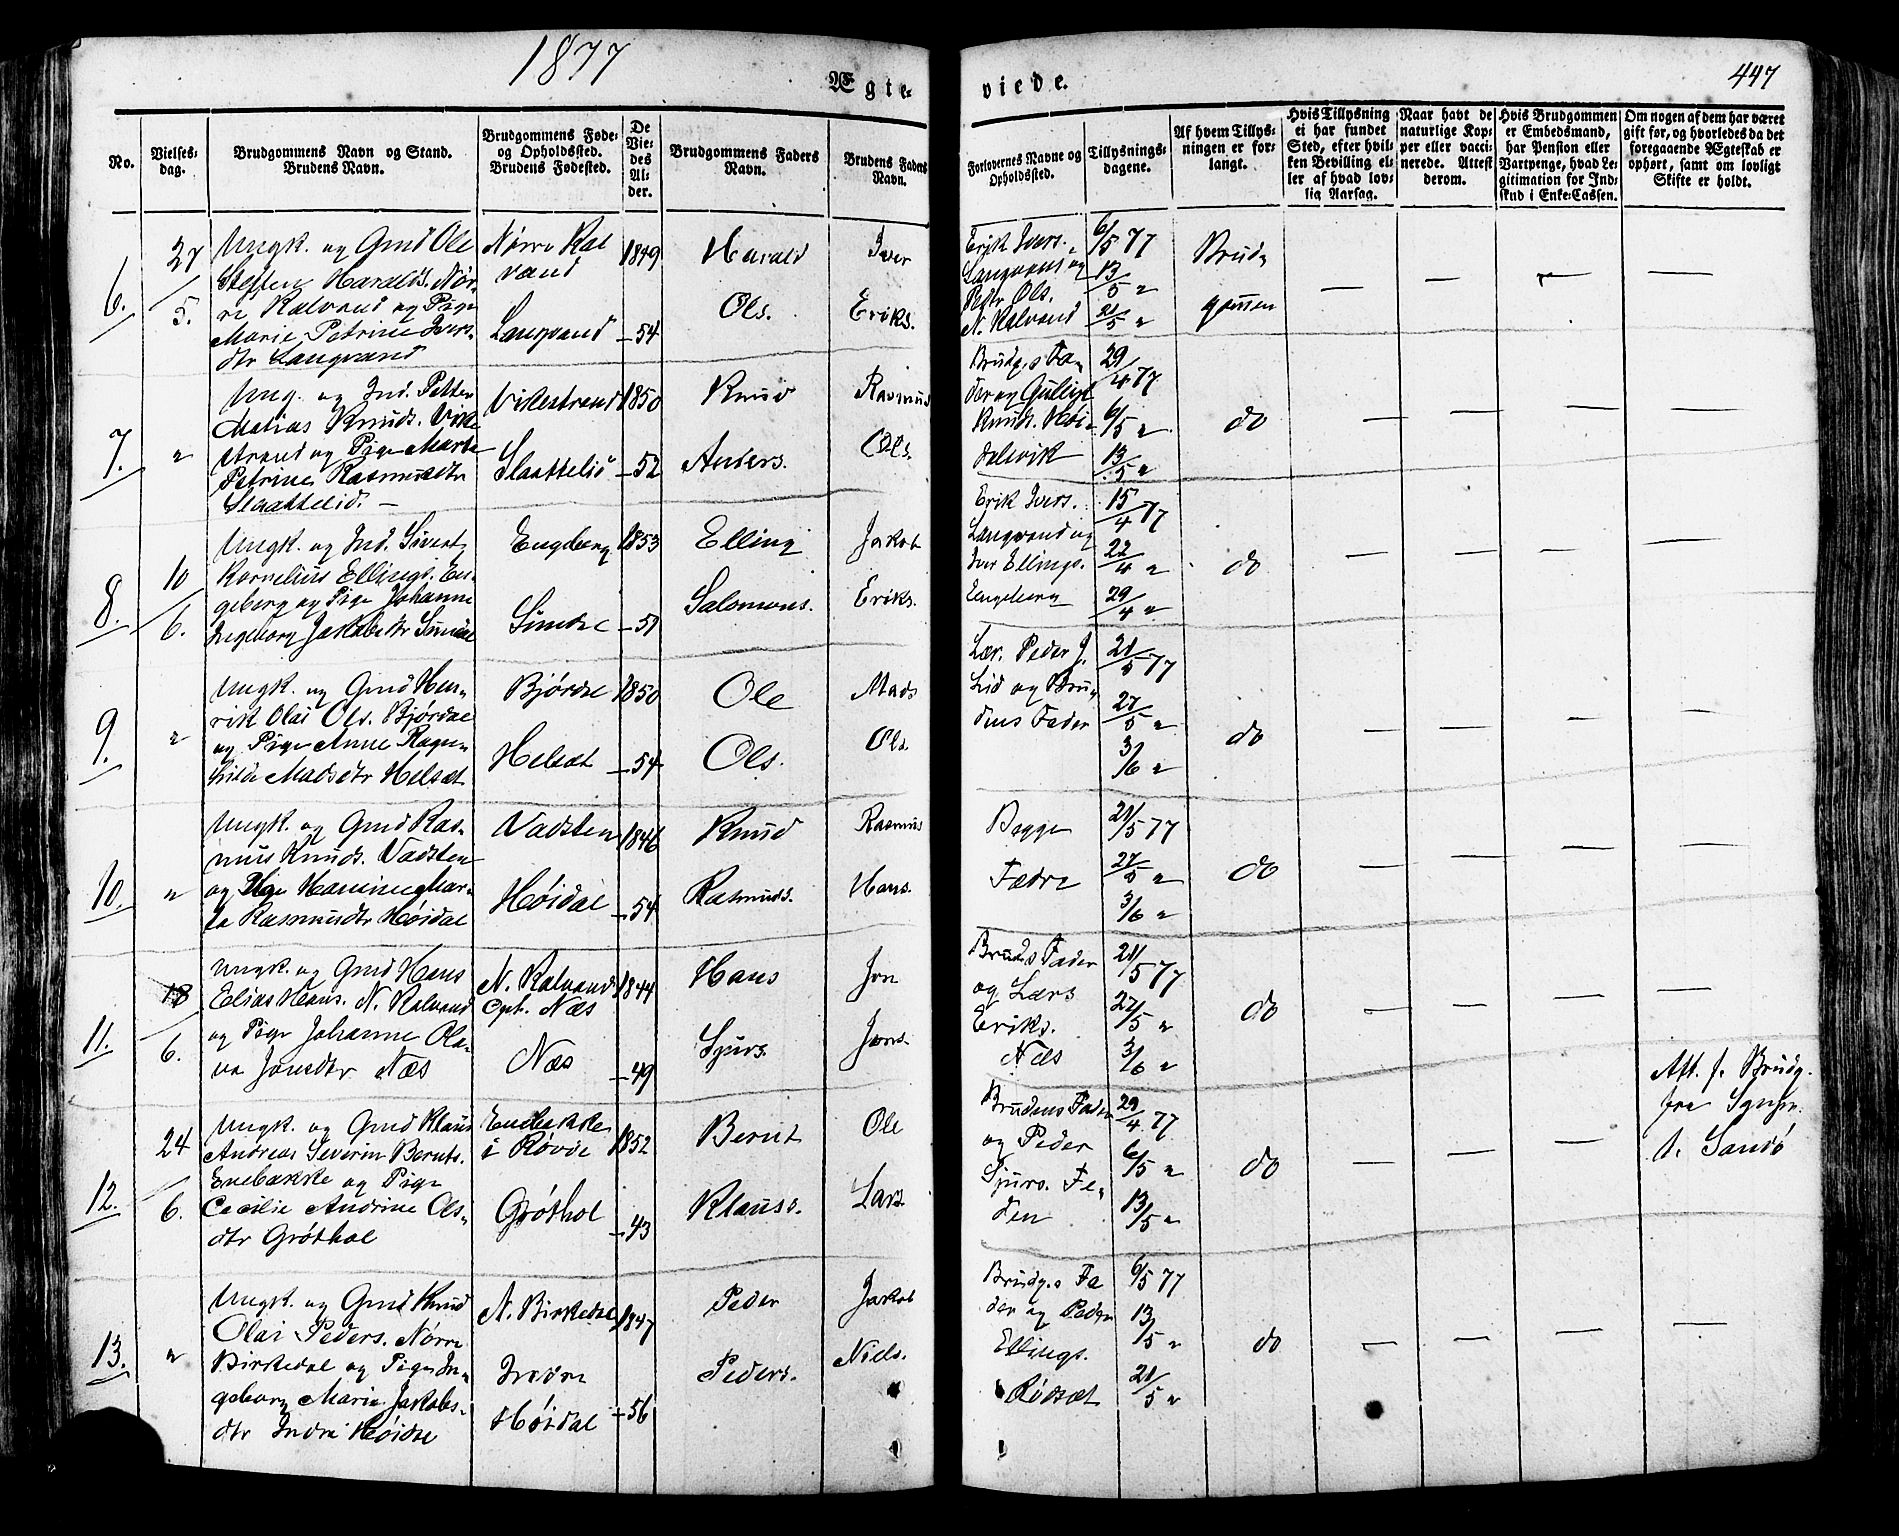 1877
Ægte-
viede.
447
No.
Vielses-
dag.
Brudgommens Navn og Stand.
Brudens Navn.
Brudgommens Føde-
og Opholdssted.
Brudens Fødested.
De
Vie-
des
Al-
der.
Brudgommens Faders
Navn.
Brudens Faders
Navn.
Forlovernes Navne og
Opholdssted.
Tillysnings-
dagene.
Af hvem Tillys-
ningen er for-
langt.
Hvis Tillysning
ei har fundet
Sted, efter hvil-
ken Bevilling el-
ler af hvad lov-
lig Aarsag.
Naar havt de
naturlige Kop-
per eller vacci-
nerede. Attest
derom.
Hvis Brudgommen
er Embedsmand,
har Pension eller
Vartpenge, hvad Le-
gitimation for Ind-
skud i Enke-Cassen.
Om nogen af dem har været
gift før, og hvorledes da det
foregaaende Ægteskab er
ophørt, samt om lovligt
Skifte er holdt.
6.
27/5.
Ungk. og Gmd Ole
Steffen Haralds. Nør-
re Kalvand og Pige
Marie Petrine Ivers-
dtr Langvand
Nørre Kal
vand
Langvand
1849
-54
Harald
Ols.
Iver
Eriks.
Erik Ivers.
Langvand og
Petter Ols.
N. Kalvand
6/5 77
13/5 "
21/5 "
Brud-
gommen
7.
"
Ung. og Ind. Petter
Matias Knuds. Vike
strand og Pige Marte
Petrine Rasmusdtr
Slaattelid. -
Vikestrand
Slaattelid
1850
-52
Knud
Anders.
Rasmus
Ols.
Brudg.s Fa-
der og
Knuds. Høi-
dalsvik
29/4 77
6/5 "
13/5 "
do
8.
10/6.
Ungk. og Ind. Sivert
Kornelius Ellings. En-
geberg og Pige Johanne
Ingeborg Jakobsdtr Sundal
Engeberg
1853
-51
Elling
Salomons.
Jakob
Eriks.
Erik Ivers.
Langvand og
Iver Ellings.
Engeberg
15/4 77
22/4 "
29/4 "
do
9.
"
Ungk. og Gmd Hen-
rik Olai Ols. Bjørdal
og Pige Anne Ragn-
hilde Madsdtr Helset
Bjørdal
Helset
1850
-54
Ole
Ols.
Mads
Ols.
Lær. Peder J.
Lid og Bru-
dens Fader
21/5 77
27/5 "
3/6 "
do
10.
"
Ungk. og Gmd Ras-
mus Knuds. Vadsten
og Pige Hanninghar-
da Rasmusdtr Høidal
Vadsten
Høidal
1846
-54
Knud
Rasmuds.
Rasmus
Hans.
Begge
Fædre
21/5 77
27/5 "
3/6 "
do
11.
18/6.
Ungk. og Gmd Hans
Elias Hans. N. Kalvand
og Pige Johanne Ola-
va Jonsdtr Næs
N. Kalvand
Oph. Næs
Næs
1844
-49
Hans
Sjurs.
Jon
Jons.
Bruds Fader
og Lars
Eriks.
Næs
21/5 77
27/5 "
3/6 "
do
12.
24/6.
Ungk. og Gmd Klaus
Andreas Severin Bernts.
Enebakke og Pige
Cecilie Andrine Ols-
dtr Grøthol
Enebakke
i Rovde
Grøthol
1852
-43
Bernt
Klauss.
Ole
Lars.
Brudens Fader
og Peder
Sjurs. Fe-
den
29/4 77
6/5 "
13/5 "
do
Att. f. Brudg.
fra Sognpr.
t. Sandø
13.
"
Ungk. og Gmd Knud
Olai Peders. Nørre
Birkedal og Pige In-
geborg Marie Jakobs-
dtr Indre Høidal
N. Birkedal
Indre
Høidal
1847
-56
Peder
Peders.
Jakob
Niels.
Brudg.s Fa
der og Peder
Ellings.
Rødset
6/5 77
13/5 "
21/5 "
do